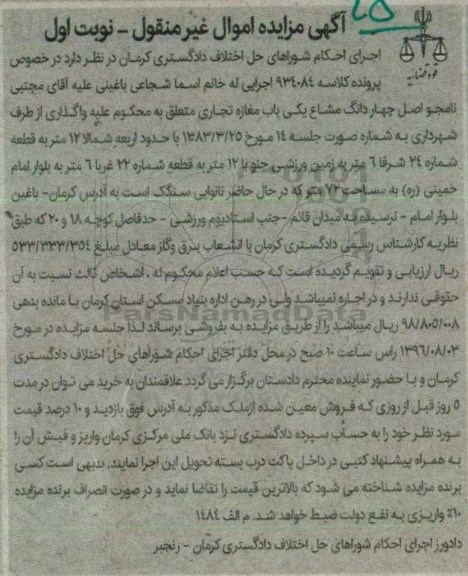 ۲۵
قوه قضاییه
آگهی مزایده اموال غیر منقول - نوبت اول
اجرای احکام شوراهای حل اختلاف دادگستری کرمان در نظر دارد در خصوص
پرونده کلاسه ۹۳۴۰۸۴ اجرایی له خانم اسما شجاعی باغینی علیه آقای مجتبی
نامجو اصل چهار دانگ مشاع یکی باب مغازه تجاری متعلق به محکوم علیه واگذاری از طرف
شهرداری به شماره صورت جلسه ۱۴ مورخ ۱۳۸۳/۳/۲۵ با حدود اربعه شمالا ۱۲ متر به قطعه
شماره ۲۴ شرقا ۶ متر به زمین ورزشی جنوبا ۱۲ متر به قطعه شماره ۲۲ غربا ۶ متر به بلوار امام
خمینی (ره) به مساحت ۷۲ متر که در حال حاضر نانوایی سنگک است به آدرس کرمان- باغین
بلوار امام - نرسیده به میدان قائم -جنب استادیوم ورزشی - حدفاصل کوچه ۱۸ و ۲۰ که طبق
نظریه کارشناس رسمی دادگستری کرمان با انشعاب برق وگاز معادل مبلغ ۵۳۳/۳۳۳/۳۵۴
ریال ارزیابی و تقویم گردیده است که حسب اعلام محکوم له ، اشخاص ثالث نسبت به آن
حقوقی ندارند و در اجاره نمیباشد ولی در رهن اداره بنیاد مسکن استان کرمان با مانده بدهی
۹۸/۸۰۵/۰۰۸ ریال میباشد را از طریق مزایده به بفروشی برساند لذا جلسه مزایده در مورخ
۱۳۹۶/۰۸/۰۳ راس ساعت ۱۰ صبح در محل دفتر اجرای احکام شوراهای حل اختلاف دادگستری
کرمان و با حضور نماینده محترم دادستان برگزار می گردد علاقمندان به خرید می توان در مدت
۵ روز قبل از روزی که فروش معین شده از ملک مذکور به آدرس فوق بازدید و ۱۰ درصد قیمت
مورد نظر خود را به حساب سپرده دادگستری نزد بانک ملی مرکزی کرمان واریز و فیش آن را
به همراه پیشنهاد کتبی در داخل پاکت درب بسته تحویل این اجرا نمایند. بدیهی است کسی
برنده مزایده شناخته می شود که بالاترین قیمت را تقاضا نماید و در صورت انصراف برنده مزایده
۱۰٪ واریزی به نفع دولت ضبط خواهد شد. م الف ۱۴۸۴
دادورز اجرای احکام شوراهای حل اختلاف دادگستری کرمان - رنجبر
ParsNamadData